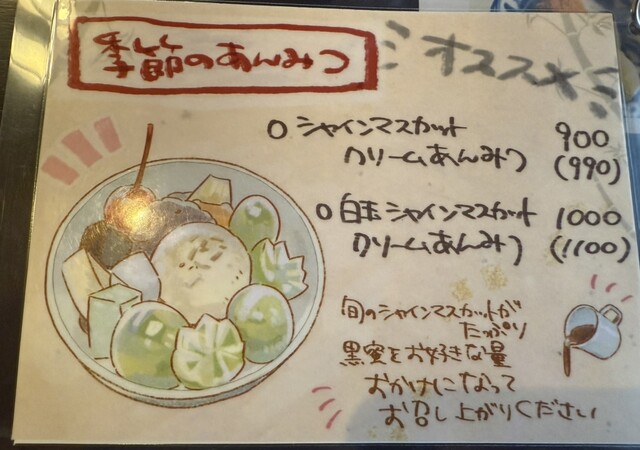 季節のあんみつ
オススメ
○シャインマスカット 900
クリームあんみつ (990)
○白玉シャインマスカット 1000
クリームあんみつ (1100)
旬のシャインマスカットが
たっぷり
黒蜜をお好きな量
おかけになって
お召し上がりください